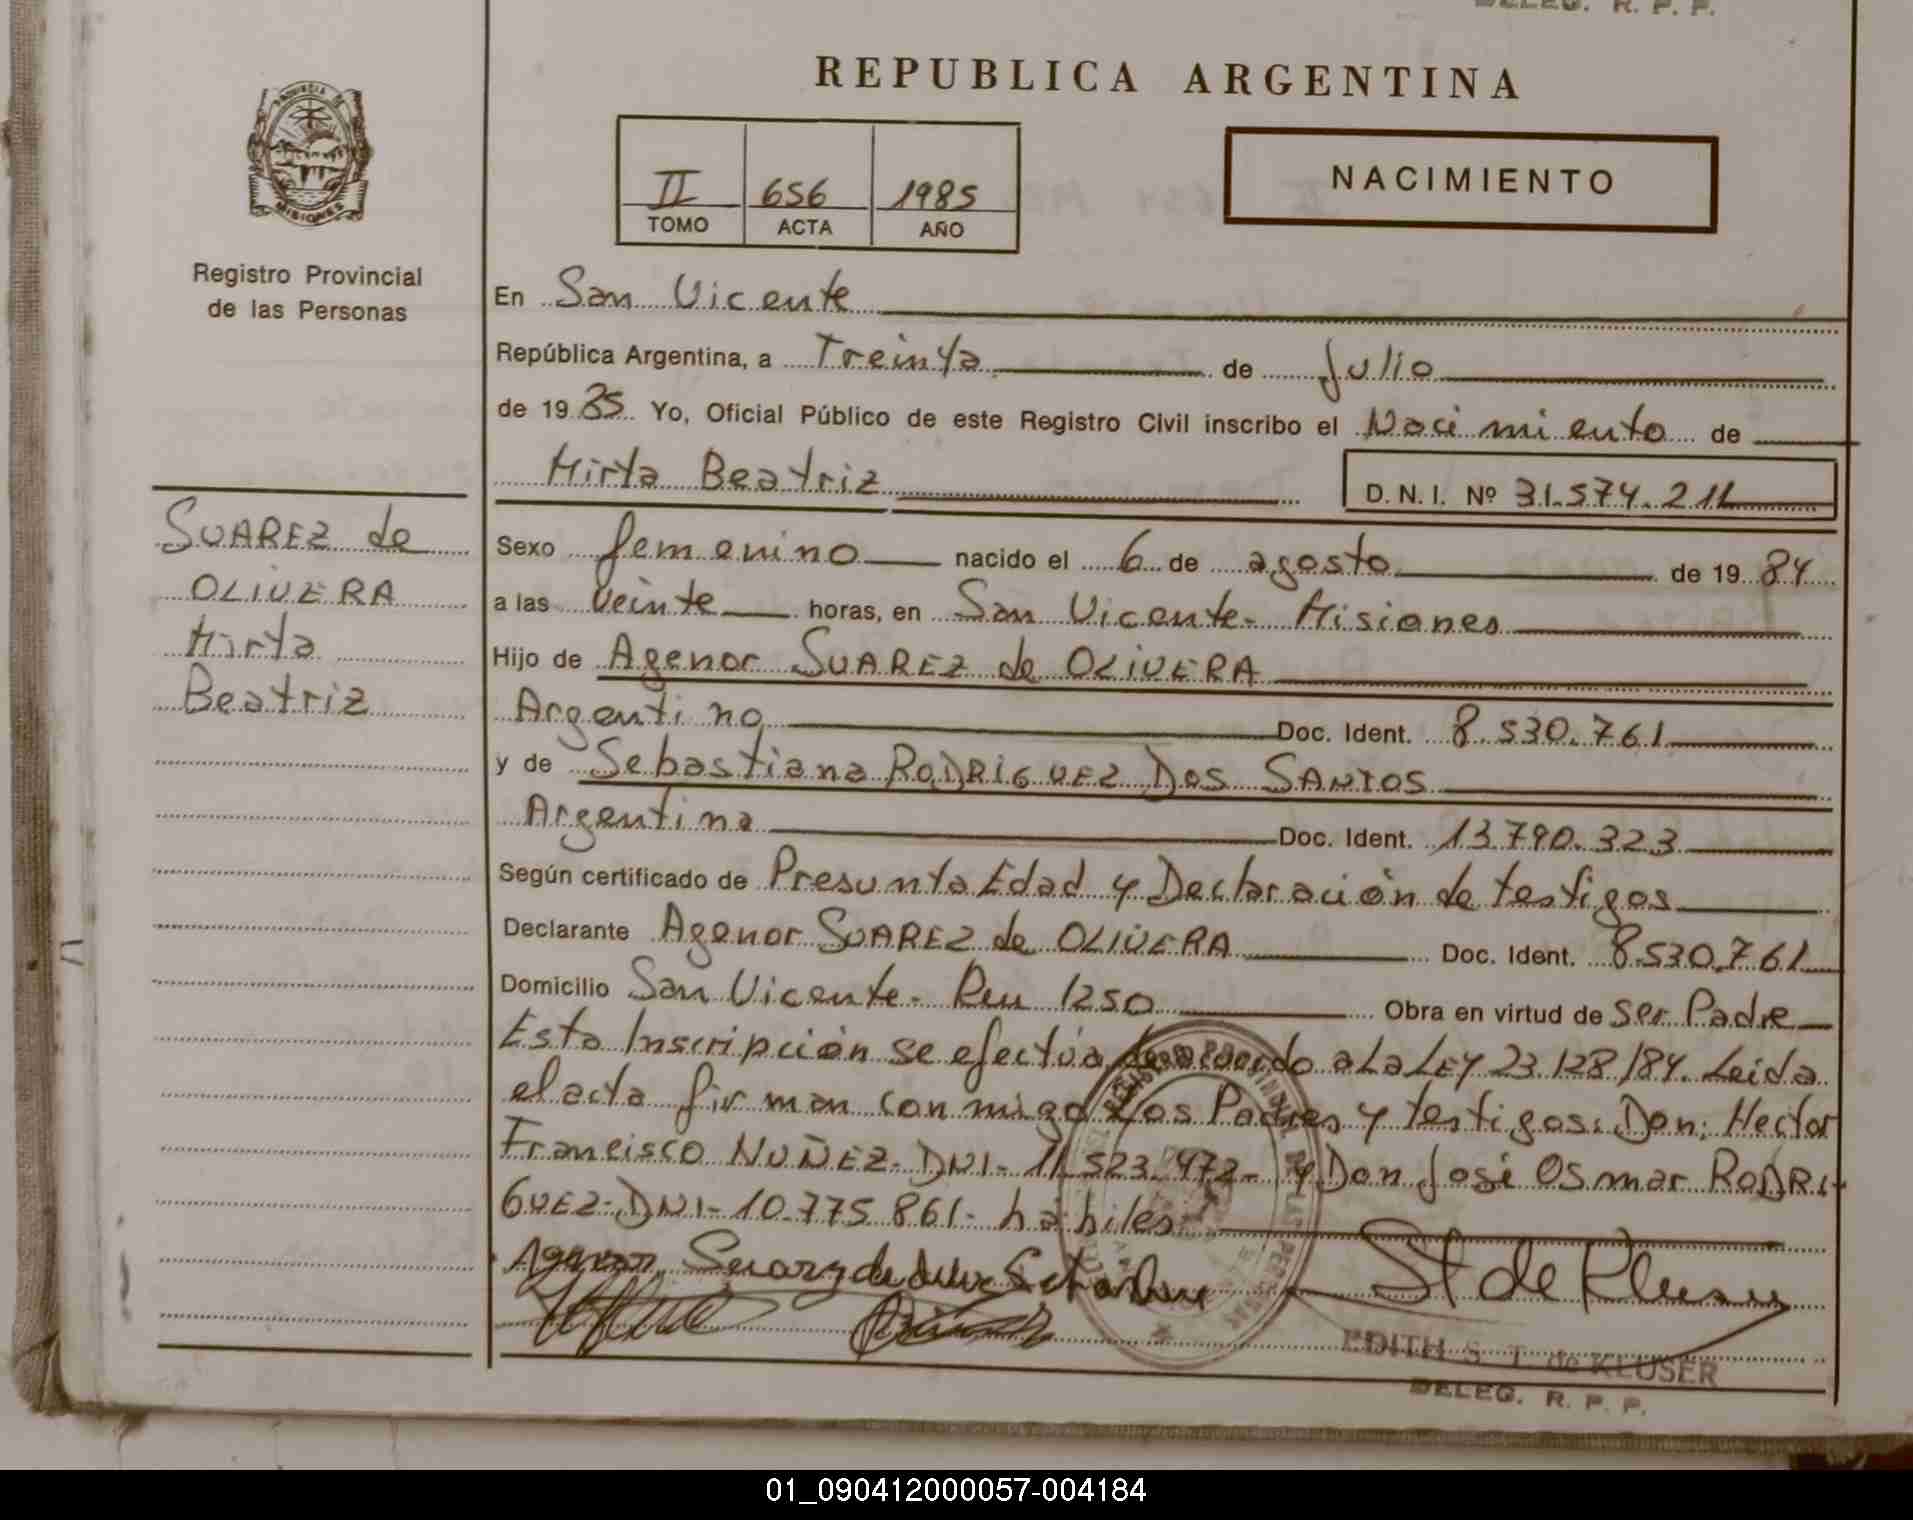 DELEG. R. P. P.
REPUBLICA ARGENTINA
PROVINCIA DE
MISIONES
II 656 1985
TOMO ACTA AÑO
NACIMIENTO
Registro Provincial
de las Personas
En San Vicente
República Argentina, a Treinta de Julio
de 19 85 Yo, Oficial Público de este Registro Civil inscribo el Nacimiento de
Mirta Beatriz D. N. I. Nº 31.574.211
SUAREZ de
OLIVERA
Mirta
Beatriz
Sexo femenino nacido el 6 de agosto de 19 84
a las Veinte horas, en San Vicente - Misiones
Hijo de Agenor SUAREZ de OLIVERA
Argentino Doc. Ident. 8.530.761
y de Sebastiana RODRIGUEZ DOS SANTOS
Argentina Doc. Ident. 13.790.323
Según certificado de Presunta Edad y Declaración de testigos
Declarante Agenor SUAREZ de OLIVERA Doc. Ident. 8.530.761
Domicilio San Vicente - 1250 Obra en virtud de ser Padre
Esta Inscripción se efectúa de acuerdo a La LEY 23.128/84. Leida
el acta firman conmigo Los Padres y testigos: Don: Hector
Francisco NUÑEZ - DNI - 11.523.472 - y Don José Osmar RODRI-
GUEZ - DNI - 10.775.861 - hábiles
Agenor Suarez de
St de Kluser
EDITH S. T. de KLUSER
DELEG. R. P. P.
01_090412000057-004184